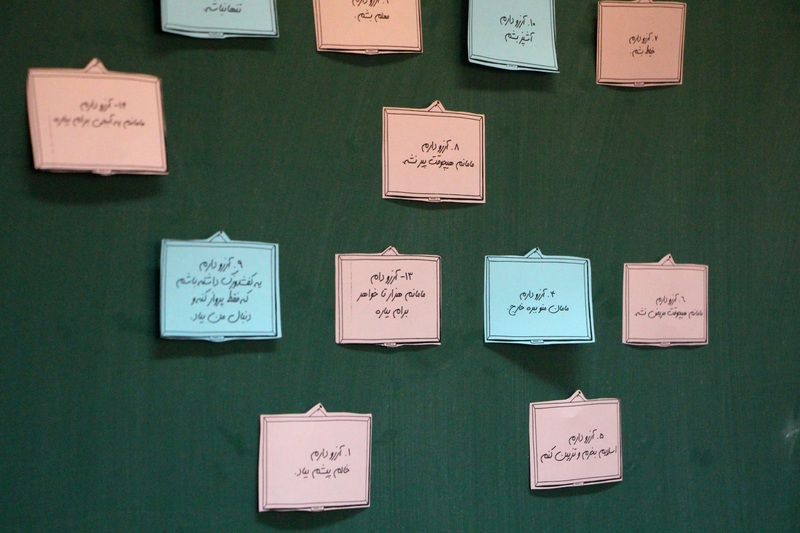 تنها نباشه
معلم بشم.
۱۰. آرزو دارم
آشپز بشم
۷. آرزو دارم
خیاط بشم
۱۴- آرزو دارم
مامانم یه آبجی برام بیاره
۸. آرزو دارم
مامانم هیچوقت پیر نشه.
۹. آرزو دارم
یه کفشدوزک داشته باشم
که فقط پرواز کنه و
دنبال من بیاد.
۱۳- آرزو دارم
مامانم هزار تا خواهر
برام بیاره
۴. آرزو دارم
مامان منو ببره خارج.
۶. آرزو دارم
مامانم هیچوقت مریض نشه
۱. آرزو دارم
خالم پیشم بیاد.
۵. آرزو دارم
اسلایم بخرم و تزیین کنم